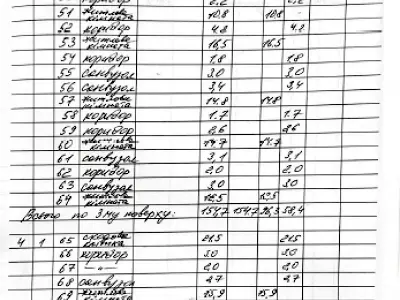 51 житлова кімната 10,8 10,8
52 коридор 4,2 4,2
53 житлова кімната 16,5 16,5
54 коридор 1,8 1,8
55 санвузол 3,0 3,0
56 санвузол 3,4 3,4
57 житлова кімната 14,8 14,8
58 коридор 1,7 1,7
59 коридор 2,6 2,6
60 житлова кімната 14,7 14,7
61 санвузол 3,1 3,1
62 коридор 2,0 2,0
63 санвузол 3,0 3,0
64 житлова кімната 12,5 12,5
Всього по 3му поверху: 154,7 154,7 58,4
4 1 65 сходова клітка 21,5 21,5
66 коридор 2,0 2,0
67 —"— 2,0 2,0
68 санвузол 2,7 2,7
69 житлова 15,9 15,9